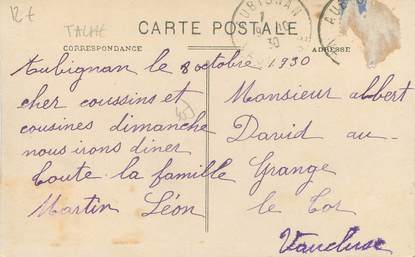 12 €
TACHE
CARTE POSTALE
CORRESPONDANCE
ADRESSE
AUBIGNAN
30
Aubignan le 8 octobre 1930
cher coussins et
cousines dimanche
nous irons diner
toute la famille
Martin Léon
Monsieur albert
David au
Grange
le Tor
Vaucluse